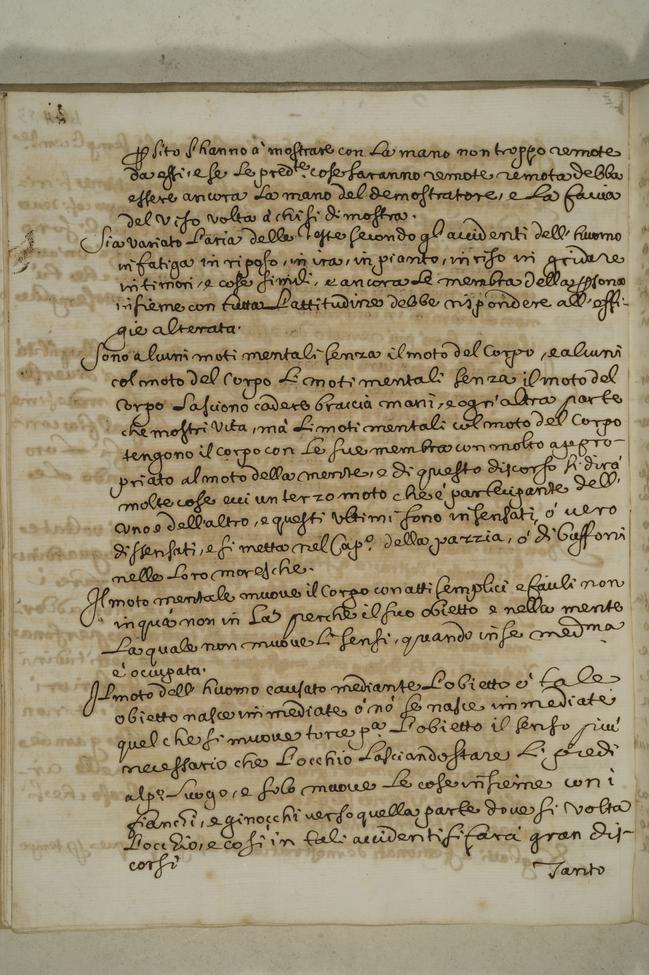 P sito s'hanno à mostrare con La mano non troppo remote
da essi, e se Le pred.te cose saranno remote, remota debba
essere ancora La mano del demostratore, e La faccia
del Viso volta à chi si dimostra.
Sia variato L'aria delle Teste secondo gl'accidenti dell'huomo
in fatiga in riposo, in ira, in pianto, in riso in gridare
in timori, e cose simili, e ancora Le membra della psona
insieme con tutta L'attitudine debbe rispondere all'effi-
gie alterata.
Sono alcuni moti mentali senza il moto del Corpo, e alcuni
col moto del Corpo Li moti mentali senza il moto del
Corpo Lasciono cadere braccia mani, e ogn'altra parte
che mostri Vita, mà Li moti mentali col moto del Corpo
tengono il corpo con Le sue membra con molto appro-
priato al moto della mente, e di questo discorso si dirà
molte cose ecci un terzo moto che è partecipante dell'
uno e dell'altro, e questi Ultimi sono insensati, ò vero
dissensati, e si metta nel Cap.º della pazzia, ò di buffoni
nelle Loro moresche.
Il moto mentale muove il Corpo con atti semplici e facili non
in quà non in Là perche il suo obietto e nella mente
La quale non muove Li sensi, quando in se medma
è occupata.
Il moto dell'huomo causato mediante L'obietto ò tale
obietto nasce immediate ò nò se nasce immediate
quel che si muove torce pa L'obietto il senso più
necessario che L'occhio Lasciando stare Li piedi
al po Luogo, e solo muove Le cose insieme con i
fianchi, e ginocchi verso quella parte dove si volta
L'occhio, e cosi in tali accidenti si farà gran dis-
corsi
Tanto